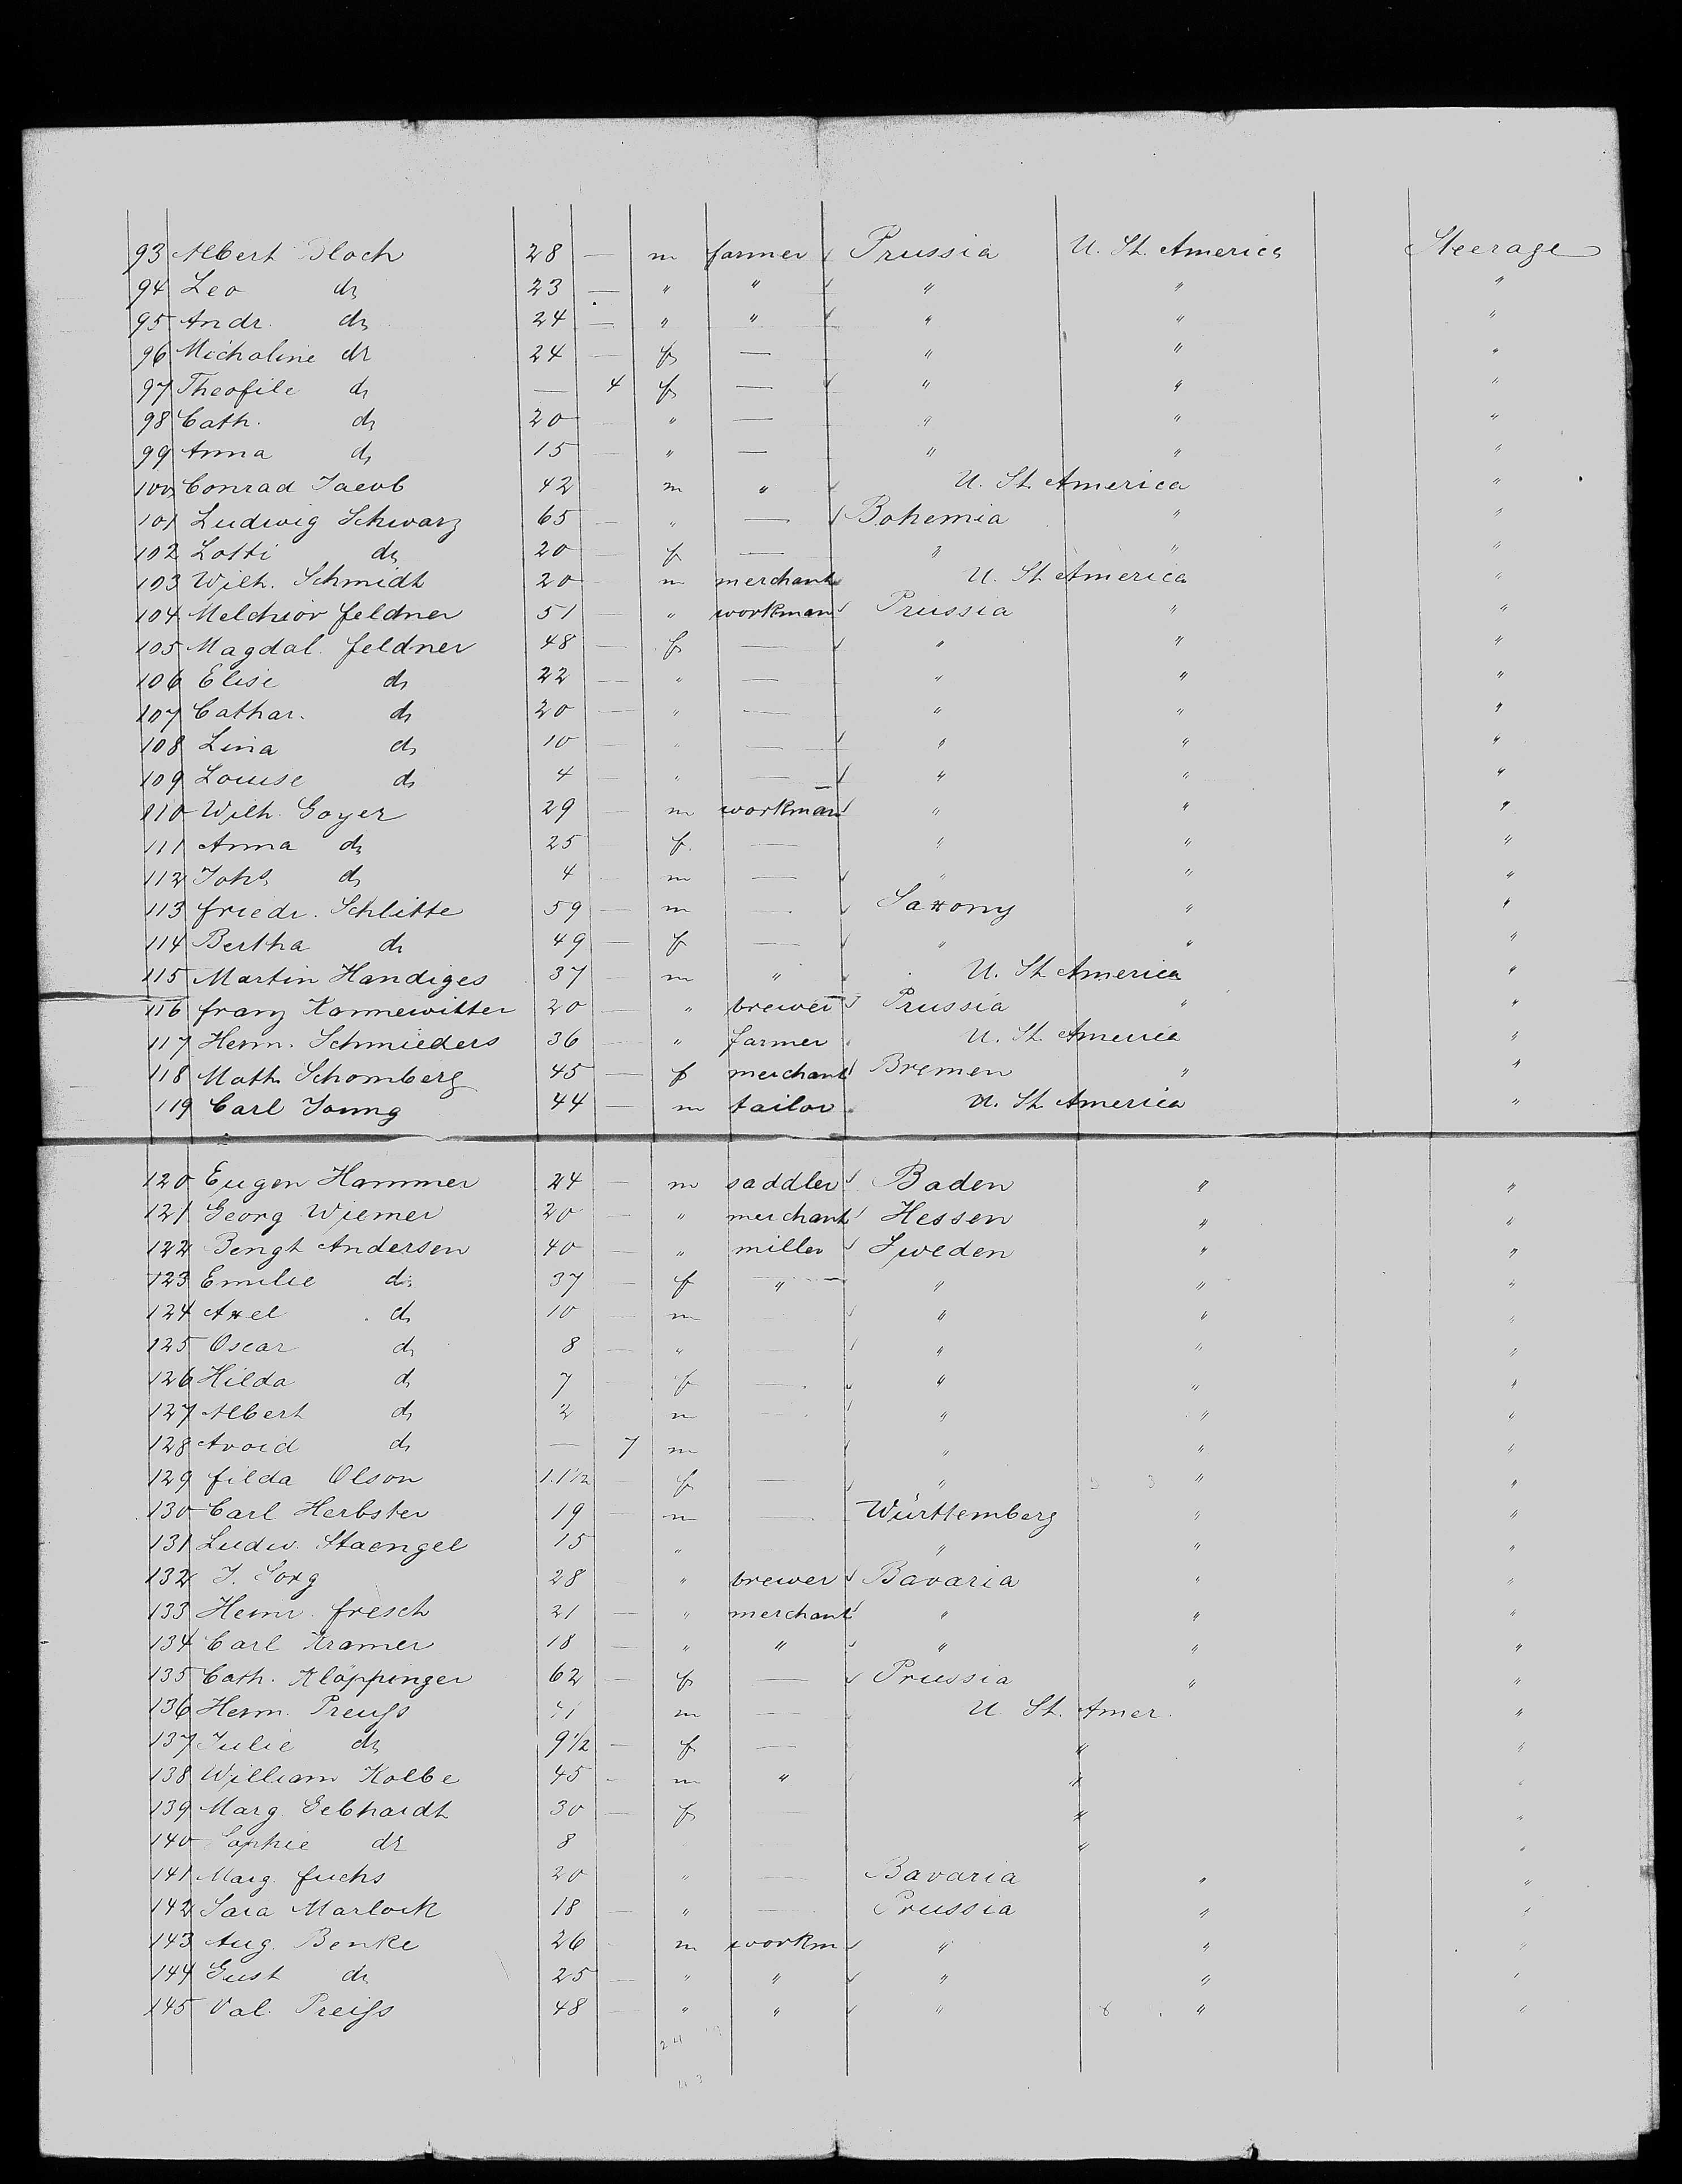 93 Albert Bloch 28 — m farmer Prussia U. St. America Steerage
94 Leo do 23 — " " " " "
95 Andr. do 24 — " " " " "
96 Michaline do 24 — f — " " "
97 Theofile do — 4 f — " " "
98 Cath. do 20 — " — " " "
99 Anna do 15 — " — " " "
100 Conrad Jacob 42 — m " U. St. America "
101 Ludwig Schwarz 65 — " — Bohemia " "
102 Lotti do 20 — f — " " "
103 Wilh. Schmidt 20 — m merchant U. St. America "
104 Melchior Feldner 51 — " workman Prussia " "
105 Magdal. Feldner 48 — f — " " "
106 Elise do 22 — " — " " "
107 Cathar. do 20 — " — " " "
108 Lina do 10 — " — " " "
109 Louise do 4 — " — " " "
110 Wilh. Goyer 29 — m workman " " "
111 Anna do 25 — f. — " " "
112 Johs do 4 — m — " " "
113 Friedr. Schlitte 59 — m — Saxony " "
114 Bertha do 49 — f — " " "
115 Martin Handiges 37 — m " U. St. America "
116 Franz Kannewitter 20 — " brewer Prussia " "
117 Herm. Schmieders 36 — " farmer U. St. America "
118 Math. Schomberg 45 — f merchant Bremen " "
119 Carl Young 44 — m tailor U. St. America "
120 Eugen Hammer 24 — m saddler Baden " "
121 Georg Wiemer 20 — " merchant Hessen " "
122 Bengt Andersen 40 — " miller Sweden " "
123 Emilie do 37 — f " — " " "
124 Axel do 10 — m " " "
125 Oscar do 8 — " " " "
126 Hilda do 7 — f — " " "
127 Albert do 2 m — " " "
128 Avoid do — 7 m " " "
129 Filda Olson 1.1½ f — " " "
130 Carl Herbster 19 — m — Württemberg " "
131 Ludw. Staengel 15 " " " "
132 J. Sorg 28 " brewer Bavaria " "
133 Heinr. Fresch 21 — " merchant " " "
134 Carl Kramer 18 — " " " " "
135 Cath. Klöppinger 62 — f — Prussia " "
136 Herm. Preuss m — U. St. Amer. "
137 Julie do 9½ — f — " "
138 William Kolbe 45 - m " " "
139 Marg. Gebhardt 30 — f — " "
140 Sophie do 8 " "
141 Marg. Fuchs 20 " — Bavaria " "
142 Sara Marlock 18 — " — Prussia " "
143 Aug. Benke 26 - m workm " " "
144 Gust do 25 — " " " " "
145 Val. Preiss 48 — " " " " "